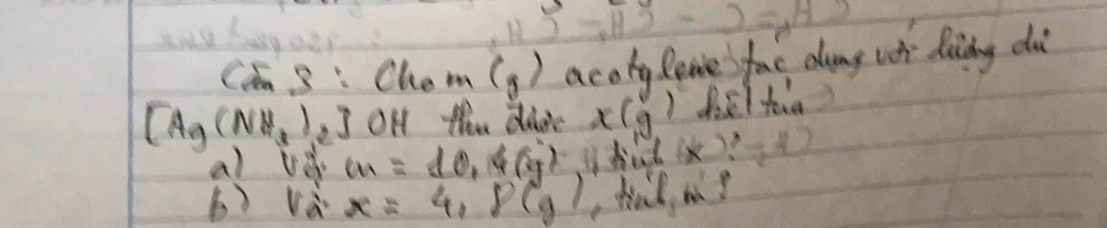 Câu 3 : Cho m (g) acotylene tác dụng với lượng dư
[Ag(NH3)2]OH thu được x(g) kết tủa
a) Với m = 10,4(g), tính (x)?
b) Với x = 4,8(g), tính m?